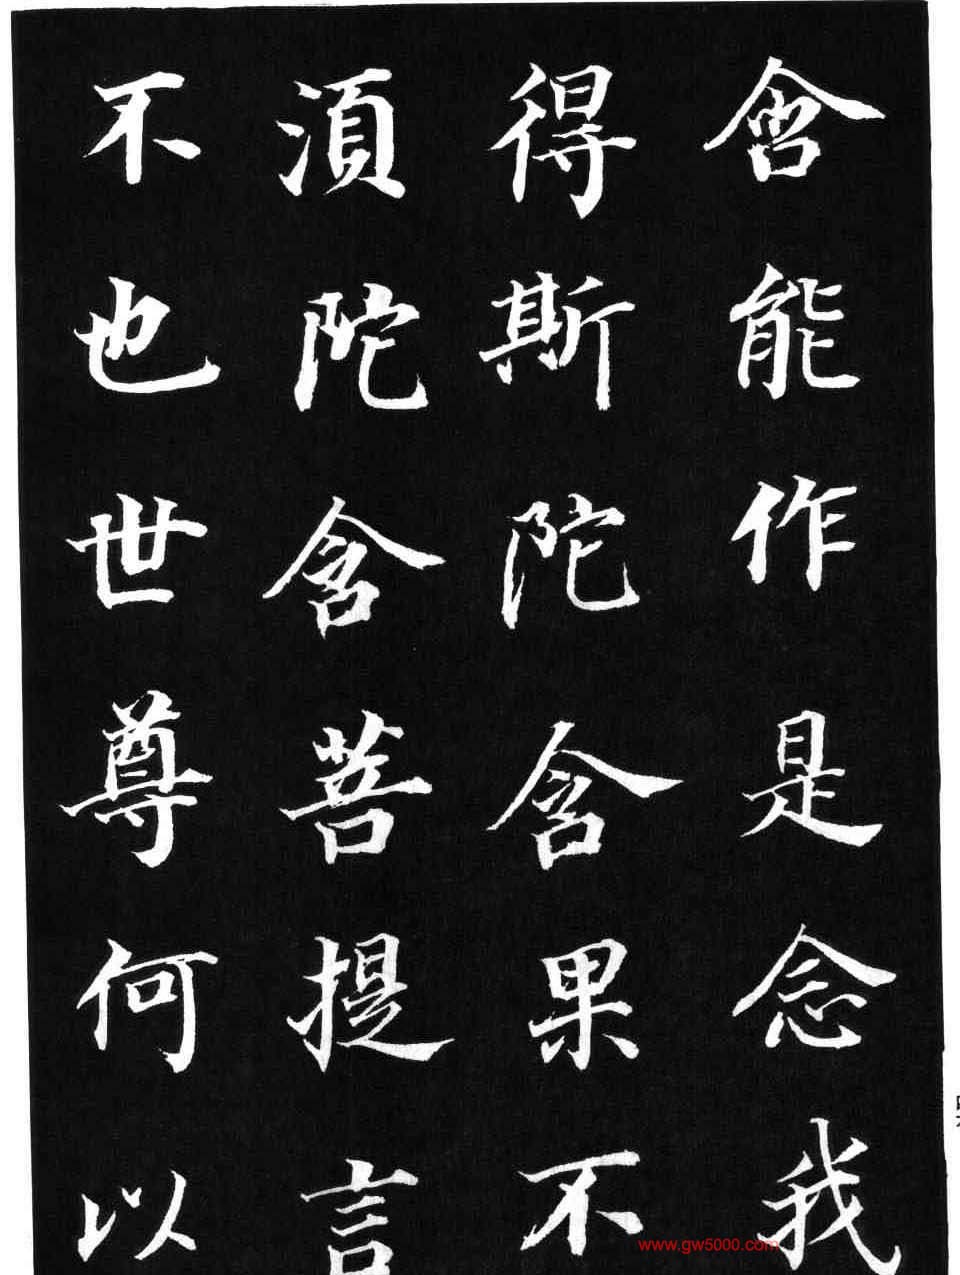 會能作是念我
得斯陀含果不
須陀含菩提言
不也世尊何以
www.gw5000.com